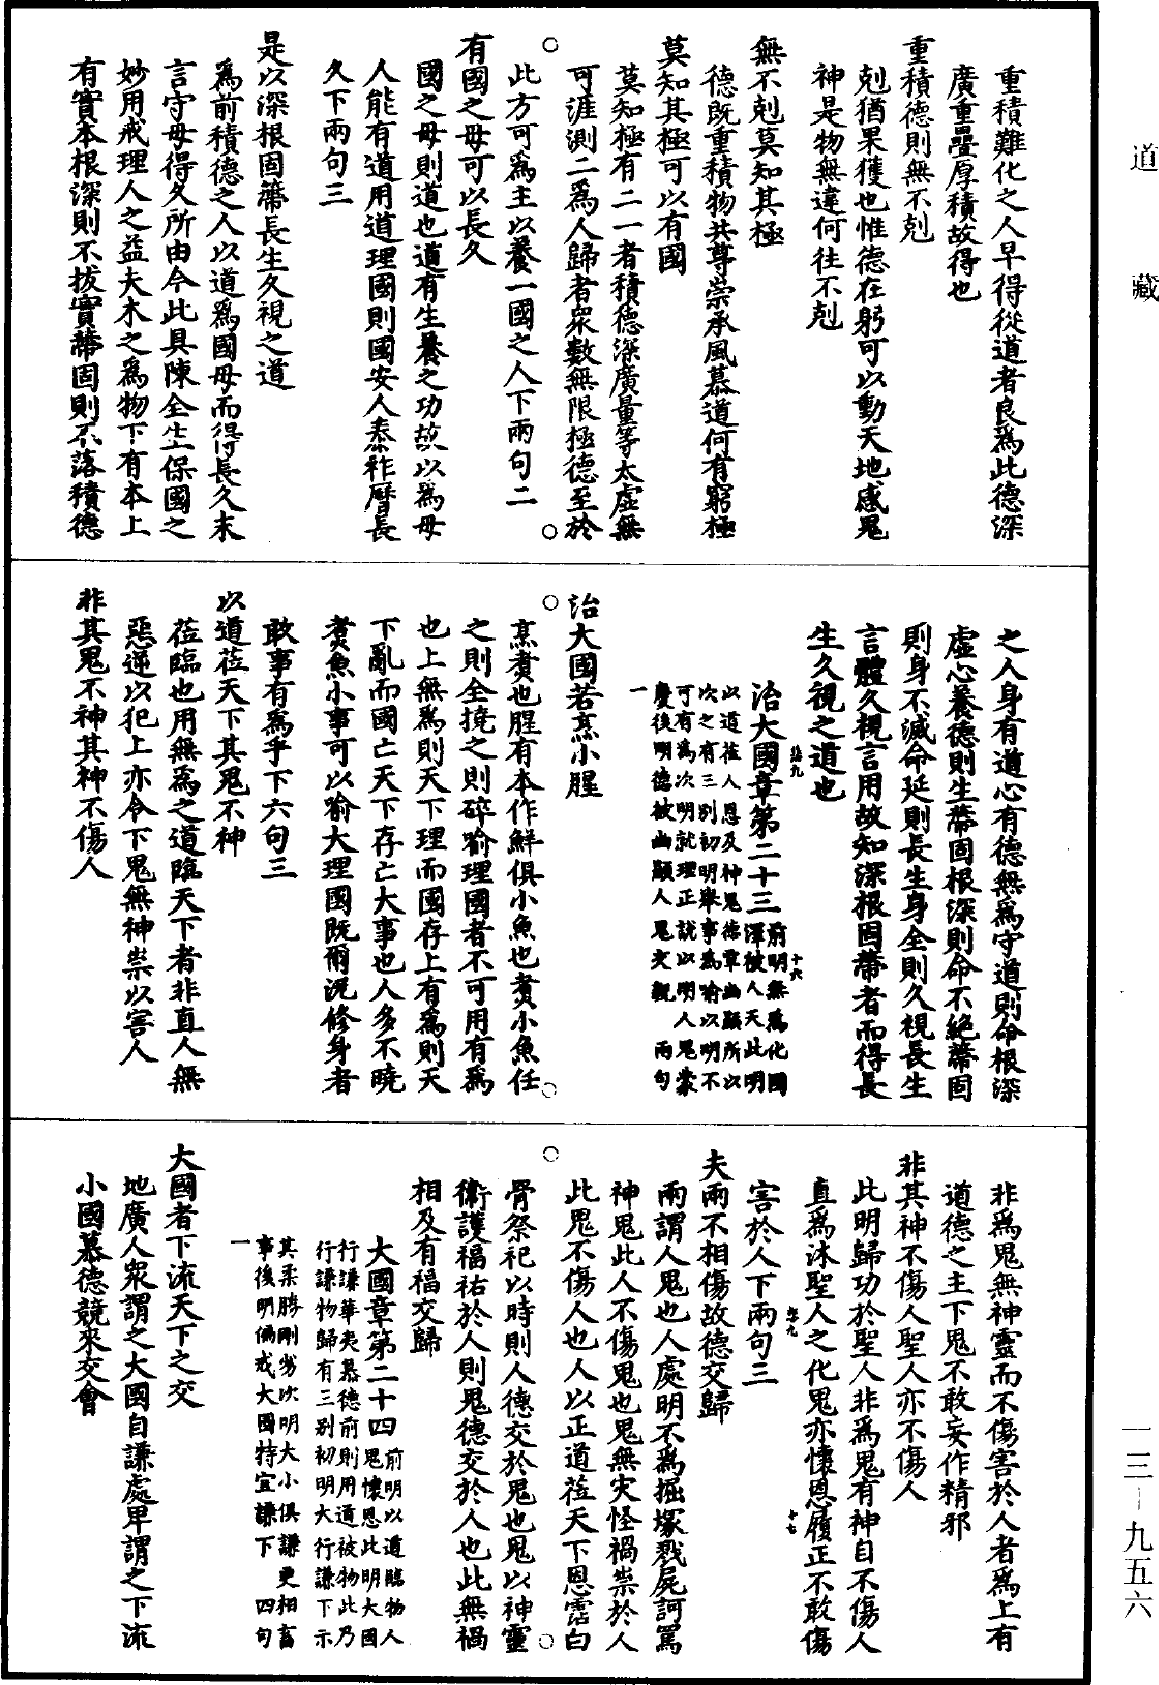 道藏
重積難化之人早得從道者良爲此德深
廣重疊厚積故得也
重積德則無不剋
剋猶果獲也惟德在躬可以動天地感鬼
神是物無違何往不剋
無不剋莫知其極
德既重積物共尊崇承風慕道何有窮極
莫知其極可以有國
莫知極有二一者積德深廣量等太虛無
可涯測二爲人歸者衆數無限極德至於
此方可爲主以養一國之人下兩句二
有國之母可以長久
國之母則道也道有生養之功故以爲母
人能有道用道理國則國安人泰祚曆長
久下兩句三
是以深根固蔕長生久視之道
爲前積德之人以道爲國母而得長久末
言守母得久所由今此具陳全生保國之
妙用戒理人之益夫木之爲物下有本上
有實本根深則不拔實蔕固則不落積德
之人身有道心有德無爲守道則命根深
虛心養德則生蔕固根深則命不絕蔕固
則身不滅命延則長生身全則久視長生
言體久視言用故知深根固蔕者而得長
生久視之道也
治大國章第二十三
前明無爲化國
澤被人天此明
以道莅人恩及神鬼德覃幽顯所以
次之有三別初明舉事爲喻以明不
可有爲次明就理正說以明人鬼蒙
慶後明德被幽顯人鬼交親 兩句
一
治大國若烹小腥
烹煮也腥有本作鮮俱小魚也煮小魚任
之則全撓之則碎喻理國者不可用有爲
也上無爲則天下理而國存上有爲則天
下亂而國亡天下存亡大事也人多不曉
煮魚小事可以喻大理國既爾況修身者
敢事有爲乎下六句三
以道莅天下其鬼不神
莅臨也用無爲之道臨天下者非直人無
惡逆以犯上亦令下鬼無神祟以害人
非其鬼不神其神不傷人
非爲鬼無神靈而不傷害於人者爲上有
道德之主下鬼不敢妄作精邪
非其神不傷人聖人亦不傷人
此明歸功於聖人非爲鬼有神自不傷人
直爲沐聖人之化鬼亦懷恩履正不敢傷
害於人下兩句三
夫兩不相傷故德交歸
兩謂人鬼也人處明不爲掘塚戮屍訶罵
神鬼此人不傷鬼也鬼無灾怪禍祟於人
此鬼不傷人也人以正道莅天下恩霑白
骨祭祀以時則人德交於鬼也鬼以神靈
衛護福祐於人則鬼德交於人也此無禍
相及有福交歸
大國章第二十四
前明以道臨物人
鬼懷恩此明大國
行謙華夷慕德前則用道被物此乃
行謙物歸有三別初明大行謙下示
其柔勝剛劣次明大小俱謙更相畜
事後明偏戒大國特宜謙下 四句
一
大國者下流天下之交
地廣人衆謂之大國自謙處卑謂之下流
小國慕德競來交會
一三—九五六